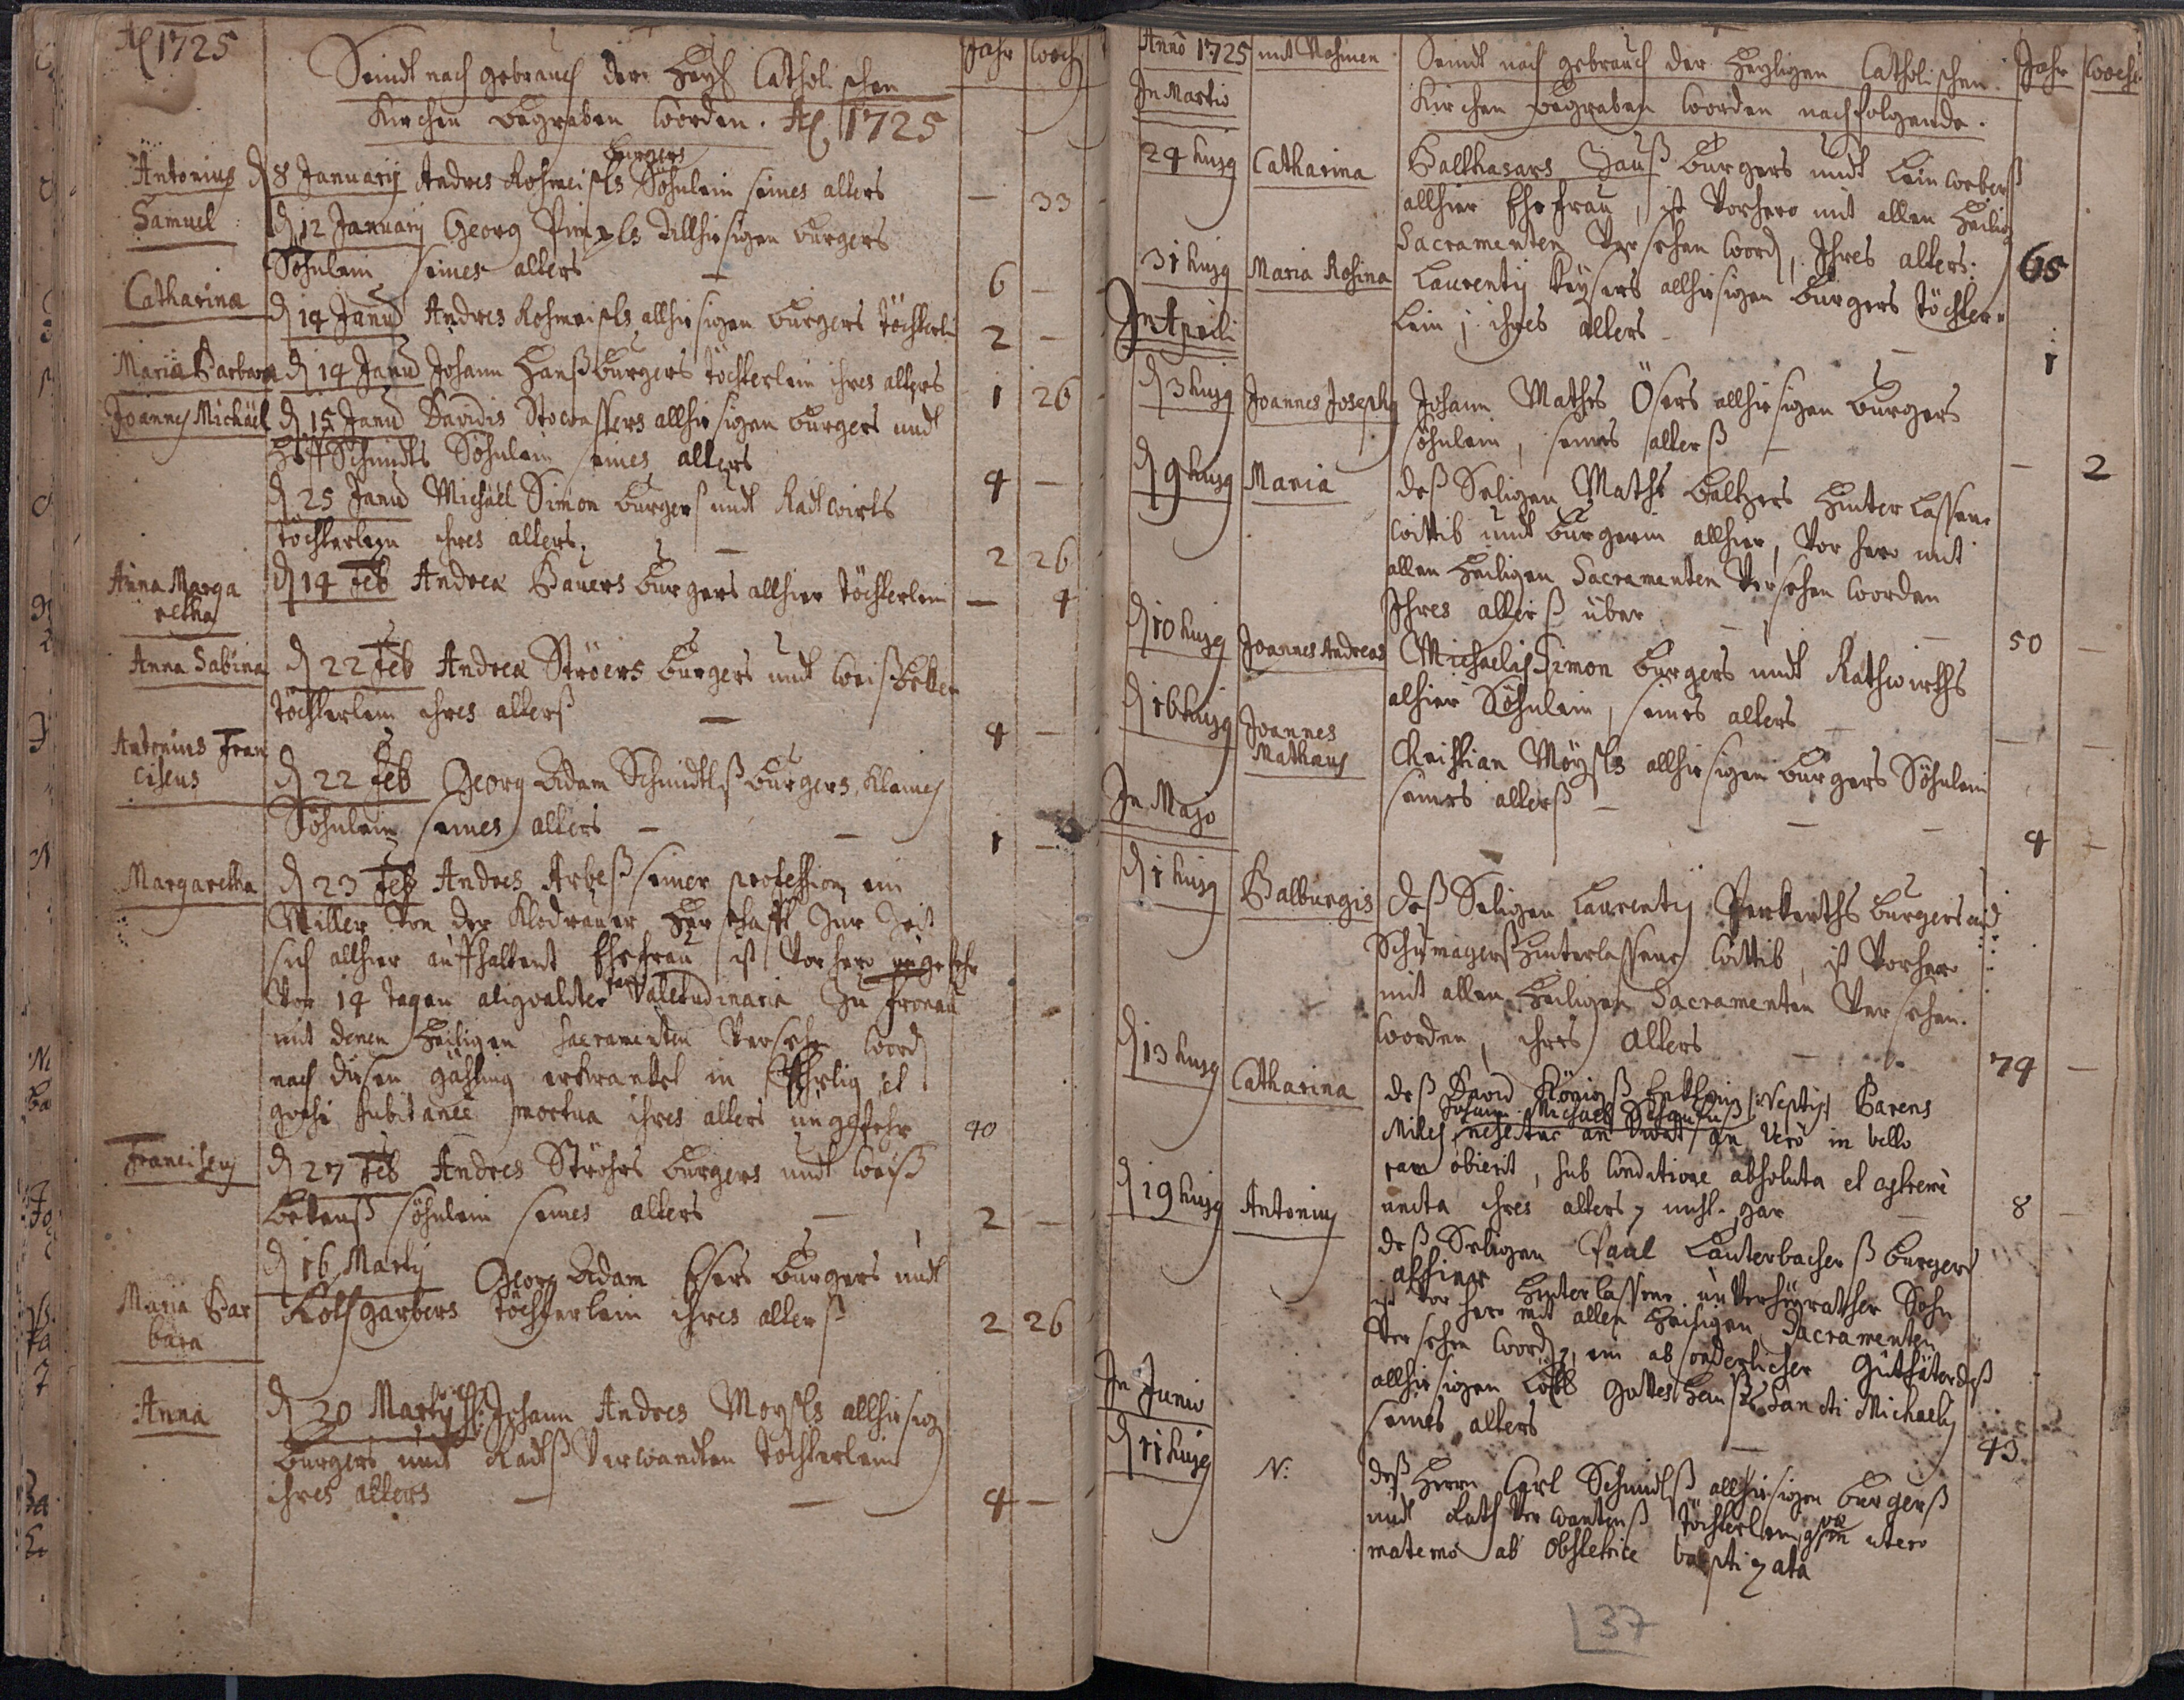 Aõ 1725
Jahr Woch
Seindt nach gebrauch der Heyl Catholischen
Kirchen begraben worden. Aõ 1725
Antonius
d 8 Januarij Andres Rosmeisls burgers Söhnlein seines alters — 33
Samuel
d 12 Januarij Georg allhiesigen burgers
Söhnlein seines alters — 6 —
Catharina
d 14 Janu Andres Rosmeisls allhiesigen burgers töchterl 2 —
Maria Barbara
d 14 Janu Johann Hanß burgers töchterlein ihres alters 1 26
Joannes Michäel
d 15 Janu Davidis Stowassers allhiesigen burgers undt
Schmidts Söhnlein seines alters 4 —
d 25 Janu Michäel Simon burgers undt Radtwirts
töchterlein ihres alters — 2 26
Anna Marga
retha
d 14 Feb Andrea Bauers burgers allhier töchterlein — 4
Anna Sabina
d 22 Feb Andrea Ströers burgers undt
töchterlein ihres alterß — 4 —
Antonius Fran
ciscus
d 22 Feb Georg Adam Schmidtlß burgers, Kleines
Söhnlein seines alters — — 1 —
Margaretha
d 23 Feb Andres Arbeß seiner profession ein
Miller von der Kladrauer Herschafft zur Zeit
sich allhier auffhaltent Ehefrau ist vorhero ungefehr
vor 14 tagen Valetudinaria zu Fronau
mit denen Heiligen sacramenten versehen word
nach disen gähling erkranket in et
quasi subitanee mortua ihres alters ungefehr 40
Franciscus
d 27 Feb Andres Ströhrs burgers undt weiß
bekenß söhnlein seines alters — 2 —
Maria Bar
bara
d 16 Martij Georg Adam Esers burgers undt
Rothgarbers töchterlein ihres alterß 2 26
Anna
d 20 Martij Johann Andres Moysls allhiesig
burgers undt Radtß Verwandten tochterlein
ihres alters — — 4 —
Anno 1725 mit Nahmen
Seindt nach gebrauch der Heyligen Catholischen Jahr Woch
Kirchen begraben worden nachfolgende.
In Martio
24 hujq Catharina
Balthasars Jauß burgers undt Leinweberß
allhier Ehefrau, ist vorhero mit allen Heilig
Sacramenten versehen word, Ihres alters: 65
31 hujq Maria Rosina
Laurentij Keysers allhiesigen burgers töchter=
lein; ihres alters — — 1
In Aprili
d 3 hujq Joannes Josephq
Johann Mathes Ösers allhiesigen burgers
söhnlein, seines alterß — — 2
d 9 hujq Maria
deß Seligen Mathes Balthers Hinterlassene
wittib undt burgerin allhier, vorhero mit
allen Heiligen Sacramenten versehen worden
Ihres alterß über — — 50 —
d 10 hujq Joannes Andreas
Michaelis Simon burgers undt Rathwirths
alhier Söhnlein, seines alters — — —
d 16 hujq Joannes
Mathaus
Christian Möysls allhiesigen burgers Söhnlein
seines alterß — — — 4 —
In Majo
d 1 hujq Balburgis
deß Seligen Laurentij burgers und
Schumagerß hinterlassene wittib, ist vorhero
mit allen Heiligen Sacramenten versehen
worden, ihres alters — 74 —
d 13 hujq Catharina
deß David Königß Enklein (: Neptis) Parens
Johann Michael
Miles, nescitur an vivat, an vero in bello
iam obierit, sub conditione absoluta et extreme
uncta ihres alters nicht gar — 8 —
d 19 hujq Antonius
deß Seligen Paul Lauterbacherß burgers
alhier Hinterlassene unverheyrather Sohn
ist vorhero mit allen Heiligen Sacramenten
versehen word, ein absonderlicher Guthäter deß
allhiesigen Löbl Gottes Haußes Sancti Michaelis
seines alters — 43
In Junio
d 11 hujq N:
deß Herrn Carl Schmidlß allhiesigen burgerß
undt Rath Verwantenß töchterlein, in utero
materno ab obstetrice baptizata
37